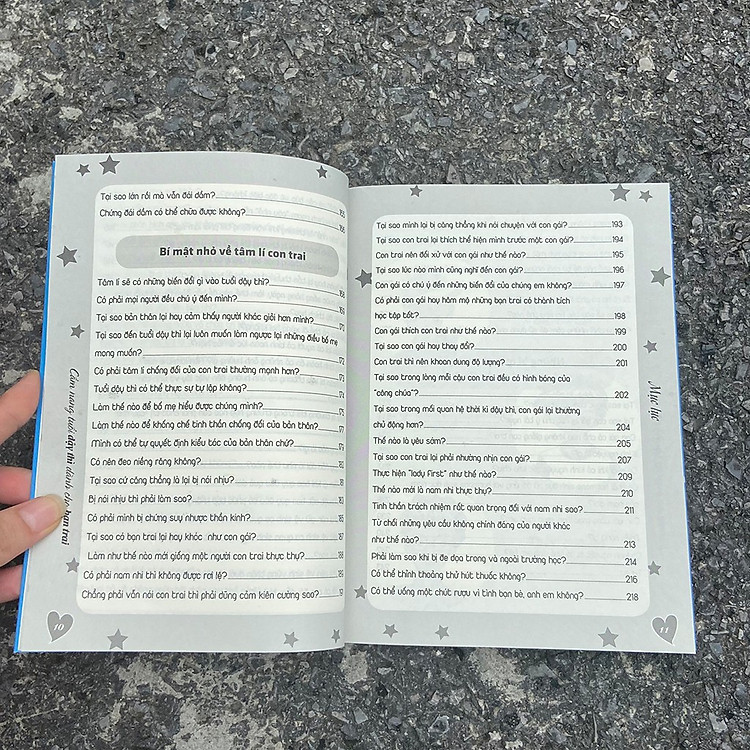 Tại sao lớn rồi mà vẫn đái dầm? 165
Chứng đái dầm có thể chữa được không? 166
Bí mật nhỏ về tâm lí con trai
Tâm lí sẽ có những biến đổi gì vào tuổi dậy thì? 168
Có phải mọi người đều chú ý đến mình? 169
Tại sao bản thân lại hay cảm thấy người khác giỏi hơn mình? 170
Tại sao đến tuổi dậy thì lại luôn muốn làm ngược lại những điều bố mẹ
mong muốn? 172
Có phải tâm lí chống đối của con trai thường mạnh hơn? 174
Tuổi dậy thì có thể thực sự tự lập không? 174
Làm thế nào để bố mẹ hiểu được chúng mình? 175
Làm thế nào để khống chế tinh thần chống đối của bản thân? 177
Mình có thể tự quyết định kiểu tóc của bản thân chứ? 178
Có nên đeo niềng răng không? 180
Tại sao cứ căng thẳng là lại bị nói nhịu? 181
Bị nói nhịu thì phải làm sao?
Có phải mình bị chứng suy nhược thần kinh? 185
Tại sao có bạn trai lại hay khóc như con gái? 187
Làm như thế nào mới giống một người con trai thực thụ? 188
Có phải nam nhi thì không được rơi lệ? 189
Chẳng phải vẫn nói con trai thì phải dũng cảm kiên cường sao? 191
Cẩm nang tuổi dậy thì dành cho bạn trai
10
Tại sao mình lại bị căng thẳng khi nói chuyện với con gái? 193
Tại sao con trai lại thích thể hiện mình trước mặt con gái? 194
Con trai nên đối xử với con gái như thế nào? 195
Tại sao lúc nào mình cũng nghĩ đến con gái? 196
Con gái có chú ý đến những biến đổi của chúng em không? 197
Có phải con gái hay hâm mộ những bạn trai có thành tích
học tập tốt? 198
Con gái thích con trai như thế nào? 199
Tại sao con gái lại hay thay đổi? 200
Con trai thì nên khoan dung độ lượng? 201
Tại sao trong lòng mỗi cậu con trai đều có hình bóng của
"công chúa"? 202
Tại sao trong mối quan hệ thời kì dậy thì, con gái lại thường
chủ động hơn? 204
Thế nào là yêu sớm? 205
Tại sao con trai lại phải nhường nhịn con gái? 207
Thực hiện "lady first" như thế nào? 209
Thế nào mới là nam nhi thực thụ? 210
Tinh thần trách nhiệm rất quan trọng đối với nam nhi sao? 211
Từ chối những yêu cầu không chính đáng của người khác
như thế nào? 213
Phải làm sao khi bị đe dọa trong và ngoài trường học? 214
Có thể thỉnh thoảng thử hút thuốc không? 216
Có thể uống một chút rượu vì tình bạn bè, anh em không? 218
Mục lục
11